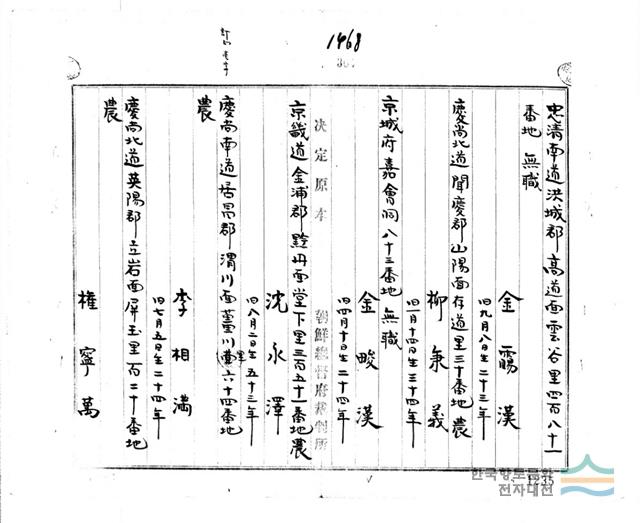 1468
忠清南道洪城郡高道面雲谷里四百八十一
番地 無職
金 賜 漢
旧九月八日生二十三年
慶尚北道聞慶郡山陽面存道里三十番地 農
柳 秉 義
旧一月十四日生三十四年
京城府嘉會洞八十三番地 無職
金 晙 漢
旧四月十日生二十四年
決定原本 朝鮮總督府裁判所
京畿道金浦郡黔丹面堂下里三百五十一番地 農
沈 永 澤
旧八月二日生五十三年
慶尚南道居昌郡渭川面薑川里六十四番地
農
李 相 満
旧七月五日生二十四年
慶尚北道英陽郡立岩面屏玉里一百二十番地
農
權 寧 萬
한국향토문화
전자대전
1235